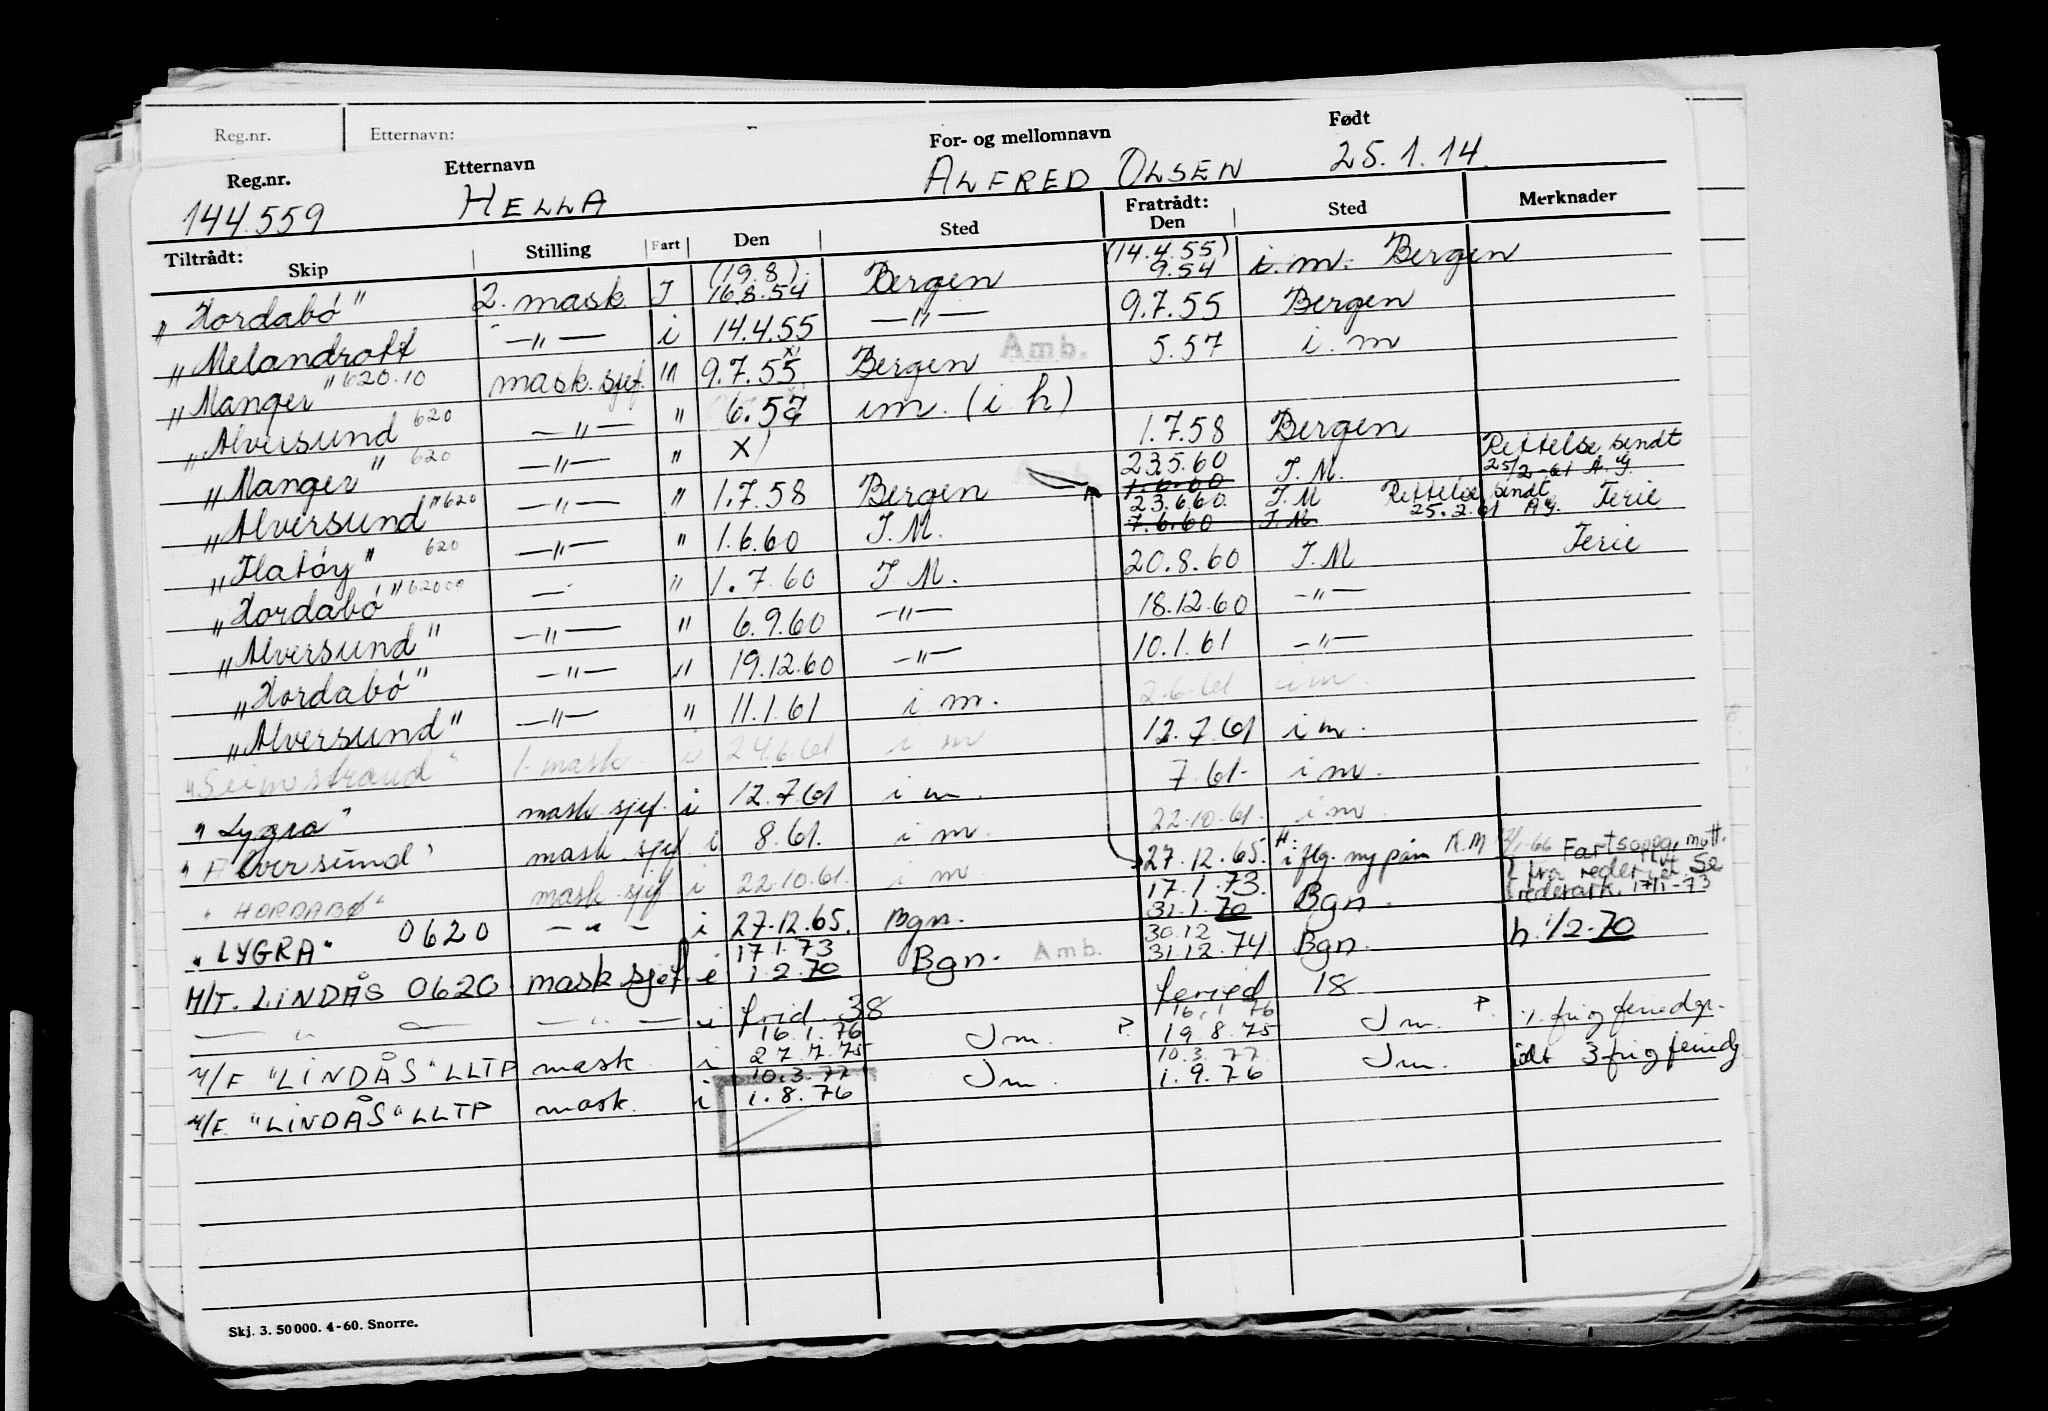 Reg.nr. Etternavn:
Reg.nr. Etternavn For- og mellomnavn Født
144.559 HELLA ALFRED OLSEN 25.1.14.
Tiltrådt: Fratrådt:
Skip Stilling Fart Den Sted Den Sted Merknader
(19.8) (14.4.55)
"Hordabö" 2. mask I 16.8.54 Bergen 9.54 i.m. Bergen
"Melandrott" —"— i 14.4.55 —"— 9.7.55 Bergen
"Manger" 620.10 mask.sjef. " 9.7.55 x) Bergen Amb. 5.57 i.m
"Alversund 620 —"— " 6.57 i m. (i h)
"Manger" 620 —"— " x) 1.7.58 Bergen
"Alversund" 620 —"— " 1.7.58 Bergen Amb. 23.5.60 I.M. Rettelse sendt 25/2-61 A.G.
1.6.60
"Flatöy" 620 —"— " 1.6.60 I.M. 23.6.60. I.M Rettelse sendt 25.2.61 A.G. Ferie
7.6.60 I.M
"Hordabö" 62000 — " 1.7.60 I M. 20.8.60 I.M Ferie
"Alversund" —"— " 6.9.60 —"— 18.12.60 —"—
"Hordabö" —"— " 19.12.60 —"— 10.1.61 —"—
"Alversund" —"— " 11.1.61 i m. 2.6.61 i m.
"Seimstrand" 1. mask. i 24.6.61 i m 12.7.61 i m.
"Lygra" mask.sjef. i 12.7.61 i m. 7.61. i m.
"Alversund" mask.sjef. i 8.61. i m. 22.10.61. i m.
"HORDABØ" mask.sjef i 22.10.61. i m. 27.12.65. i flg. R.M -66 Fartsoppg. mott. fra rederiet Se rederark. 17/1-73
17.1.73.
"LYGRA" 0620 — " — i 27.12.65. Bgn. 31.1.70 Bgn.
17.1.73 30.12
M/T. LINDÅS 0620 mask sjef i 1.2.70 Bgn. Amb. 31.12.74 Bgn. h. 1/2-70
— " — — " — i frid. 38 feried 18
16.1.76 16.1.76
M/F "LINDÅS" LLTP mask i 27.7.75 I m. P. 19.8.75 I m. P.
10.3.77 10.3.77
M/F. "LINDÅS" LLTP mask. i 1.8.76 I m. 1.9.76 I m.
Skj. 3. 50 000. 4-60. Snorre.